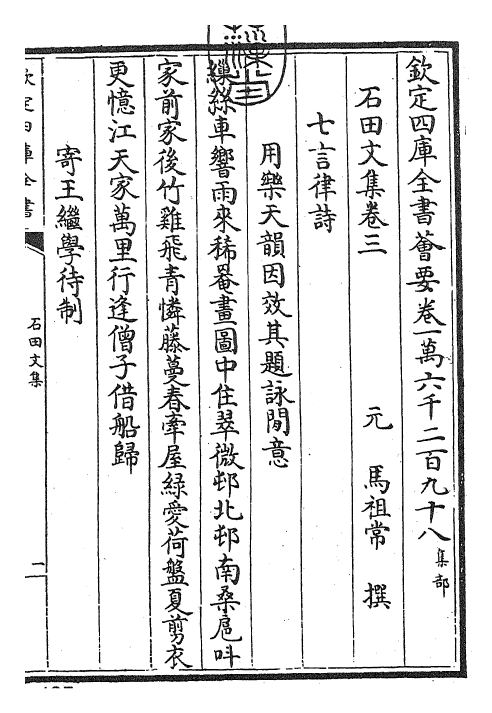 欽定四庫全書薈要卷一萬六千二百九十八 集部
石田文集卷三 元 馬祖常 撰
七言律詩
用樂天韻因效其題詠閒意
繅絲車響雨來稀罨畫圖中住翠微邨北邨南桑扈呌
家前家後竹雞飛青憐藤蔓春牽屋緑愛荷盤夏剪衣
更憶江天家萬里行逢僧子借船歸
寄王繼學待制
欽定四庫全書
石田文集
二